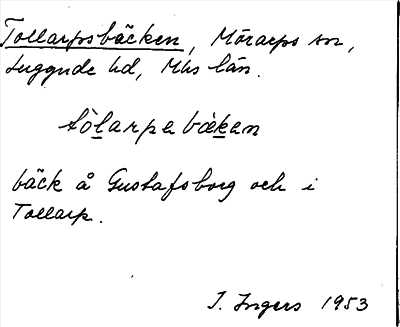 Tollarpsbäcken, Mörarps sn,
Luggude hd, Mhs län.
tòlarpabækan
bäck å Gustafsborg och i
Tollarp.
I. Ingers 1953